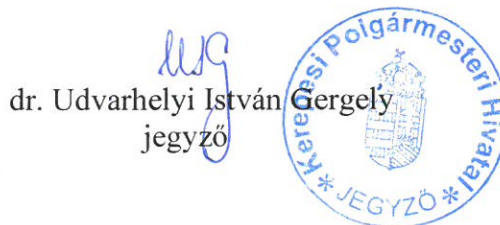 dr. Udvarhelyi István Gergely
jegyző
Kerepesi Polgármesteri Hivatal
* JEGYZŐ *